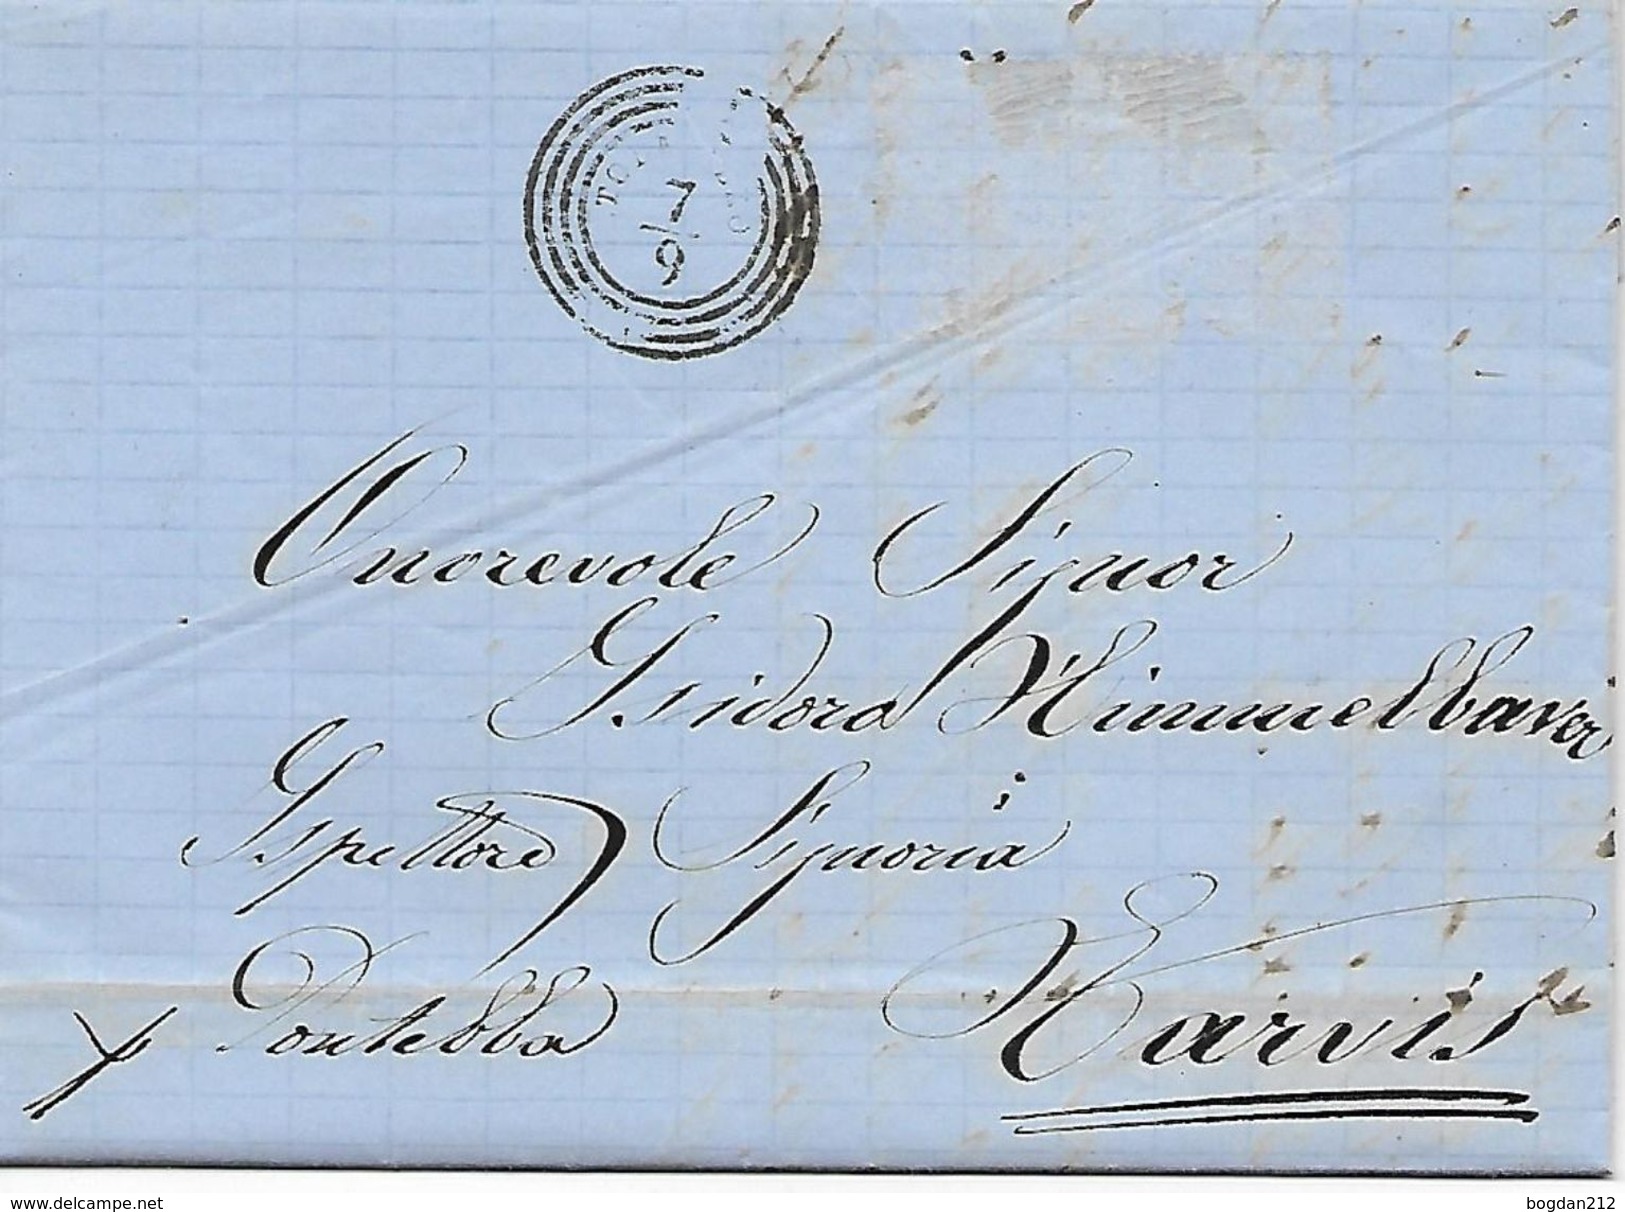 7
9
Onorevole Signor
Isidoro Himmelbaver
Ispettore Signoria
p Pontebba Tarvis
delcampe.net
bogdan212